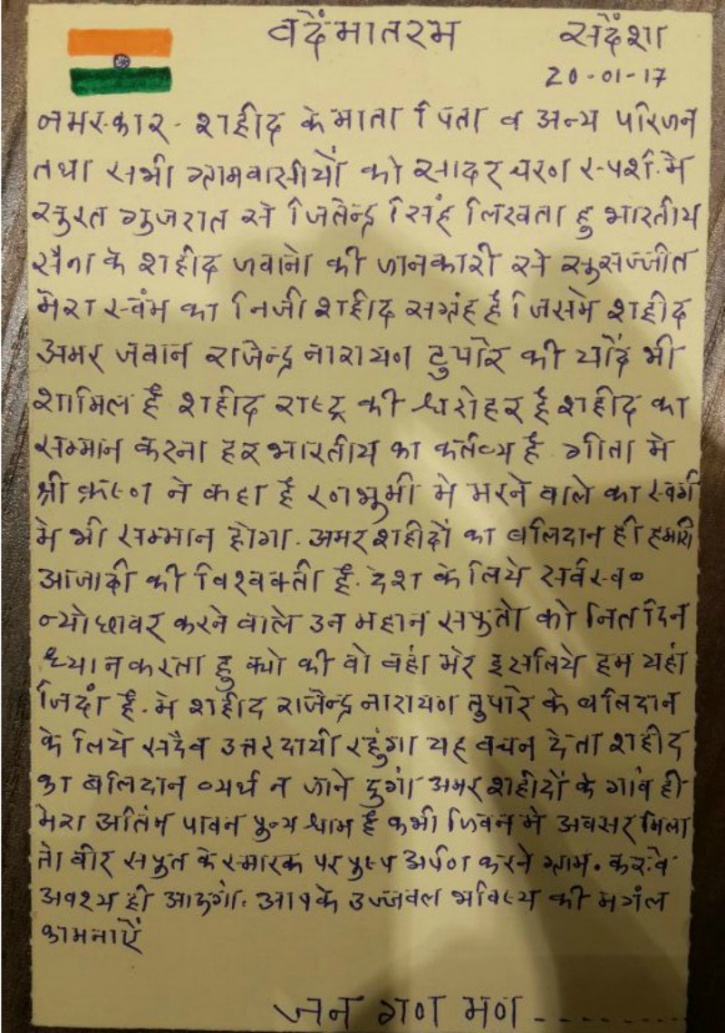 वदैंमातरम सदैंशा
20-01-17
नमस्कार - शहीद के माता पिता व अन्य परिजन
तथा सभी ग्रामवासीयों को सादर चरण स्पर्श. मै
सुरत गुजरात से जितेन्द्र सिंह लिखता हु भारतीय
सैना के शहीद जवानो की जानकारी से सुसज्जीत
मेरा स्वंम का निजी शहीद सग्रंह है जिसमे शहीद
अमर जवान राजेन्द्र नारायण टुपारे की यादें भी
शामिल है शहीद राष्ट्र की धरोहर है शहीद का
सम्मान करना हर भारतीय का कर्तव्य है गीता मे
श्री क्रष्ण ने कहा है रणभुमी मे मरने वाले का स्वर्ग
मे भी सम्मान होगा. अमर शहीदों का बलिदान ही हमारी
आजादी की है. देश के लिये सर्वस्व
न्योछावर करने वाले उन महान सपुतो को नित दिन
ध्यान करता हु क्यो की वो वहां मरे इसलिये हम यहां
जिदां है. मे शहीद राजेन्द्र नारायण तुपारे के बलिदान
के लिये सदैव उत्तरदायी रहुंगा यह वचन देता शहीद
का बलिदान व्यर्थ न जाने दुगां अमर शहीदों के गांव ही
मेरा अतिंम पावन पुन्य धाम है कभी जिवन मे अवसर मिला
तो वीर सपुत के स्मारक पर पुष्प अर्पण करने ग्राम. करवे
अवश्य ही आउगां. आपके उज्जवल भविष्य की मगंल
कामनाऐं
जन गण मण - - - - - - - -